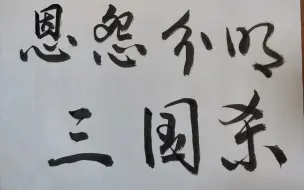 恩怨分明
三国杀